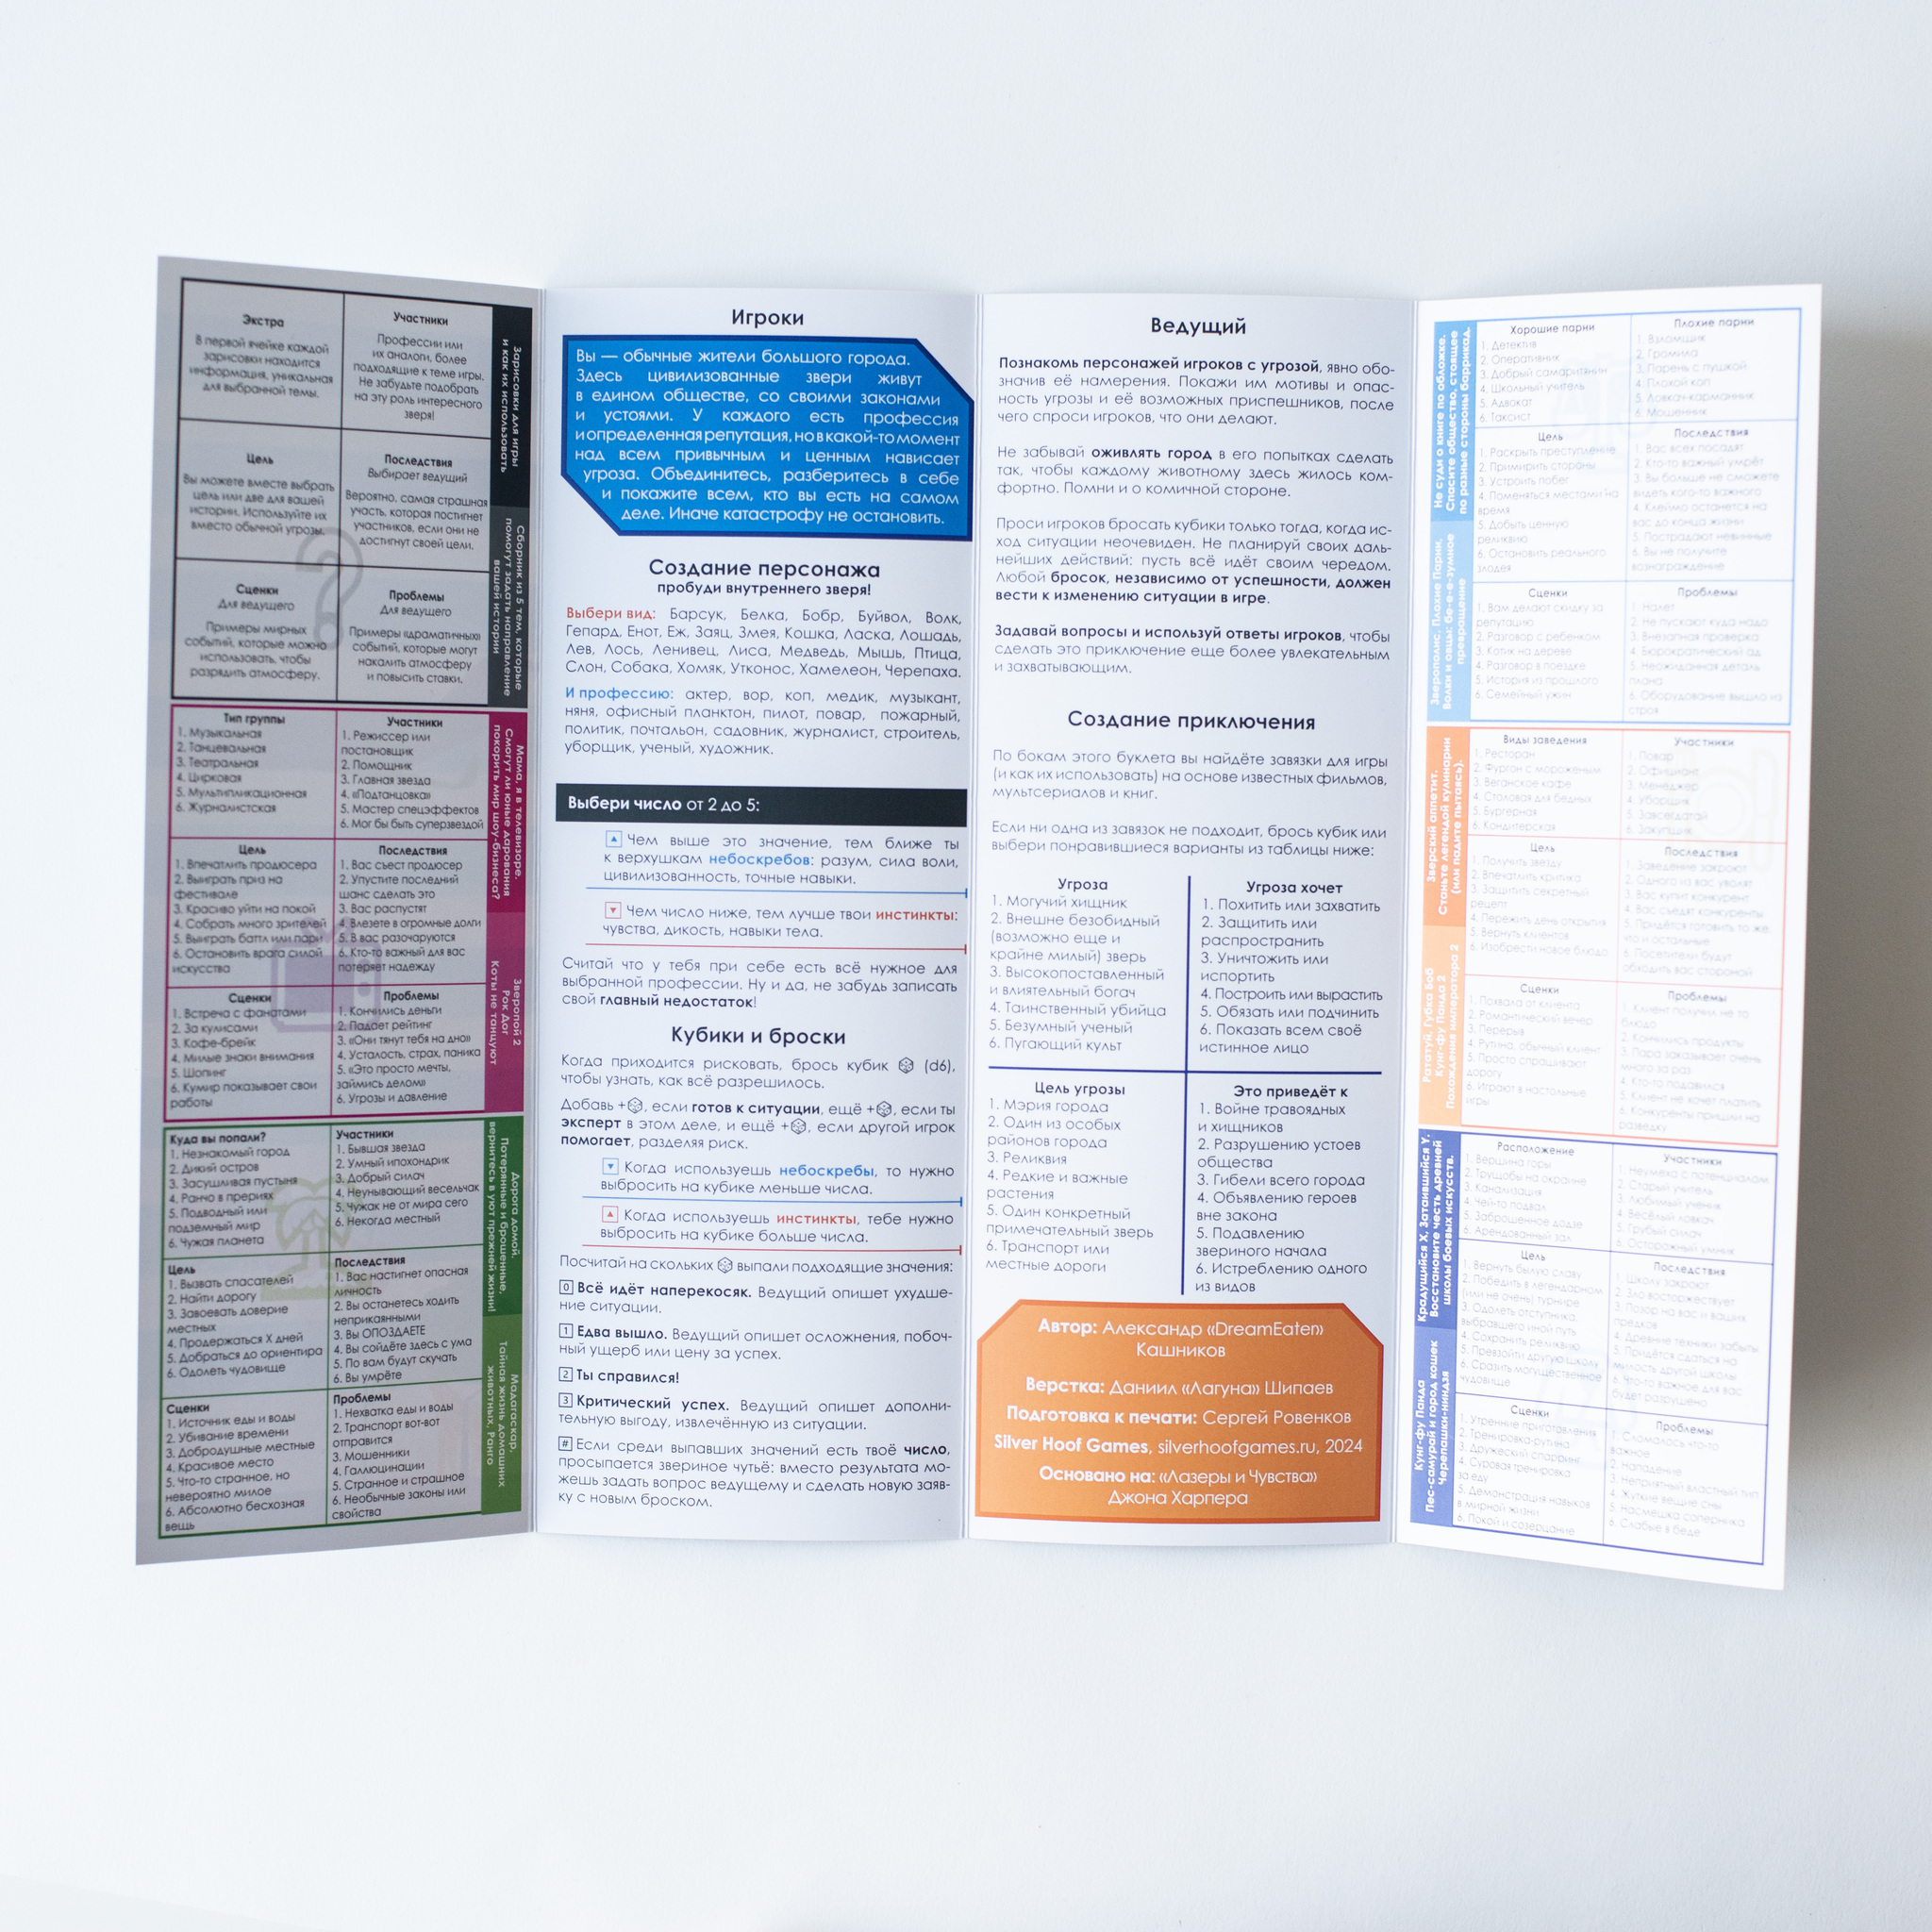 Экстра
В первой ячейке каждой
зарисовки находится
информация, уникальная
для выбранной темы.
Участники
Профессии или
их аналоги, более
подходящие к теме игры.
Не забудьте подобрать
на эту роль интересного
зверя!
Цель
Вы можете вместе выбрать
цель или две для вашей
истории. Используйте их
вместо обычной угрозы.
Последствия
Выбирает ведущий
Вероятно, самая страшная
участь, которая постигнет
участников, если они не
достигнут своей цели.
Сценки
Для ведущего
Примеры мирных
событий, которые можно
использовать, чтобы
разрядить атмосферу.
Проблемы
Для ведущего
Примеры «драматичных»
событий, которые могут
накалить атмосферу
и повысить ставки.
Зарисовки для игры
и как их использовать
Сборник из 5 тем, которые
помогут задать направление
вашей истории
Тип группы
1. Музыкальная
2. Танцевальная
3. Театральная
4. Цирковая
5. Мультипликационная
6. Журналистская
Участники
1. Режиссер или
постановщик
2. Помощник
3. Главная звезда
4. «Подтанцовка»
5. Мастер спецэффектов
6. Мог бы быть суперзвездой
Цель
1. Впечатлить продюсера
2. Выиграть приз на
фестивале
3. Красиво уйти на покой
4. Собрать много зрителей
5. Выиграть баттл или пари
6. Остановить врага силой
искусства
Последствия
1. Вас съест продюсер
2. Упустите последний
шанс сделать это
3. Вас распустят
4. Влезете в огромные долги
5. В вас разочаруются
6. Кто-то важный для вас
потеряет надежду
Сценки
1. Встреча с фанатами
2. За кулисами
3. Кофе-брейк
4. Милые знаки внимания
5. Шопинг
6. Кумир показывает свои
работы
Проблемы
1. Кончились деньги
2. Падает рейтинг
3. «Они тянут тебя на дно»
4. Усталость, страх, паника
5. «Это просто мечты,
займись делом»
6. Угрозы и давление
Мама, я в телевизоре.
Смогут ли юные дарования
покорить мир шоу-бизнеса?
Зверопой 2
Рок Дог
Коты не танцуют
Куда вы попали?
1. Незнакомый город
2. Дикий остров
3. Засушливая пустыня
4. Ранчо в прериях
5. Подводный или
подземный мир
6. Чужая планета
Участники
1. Бывшая звезда
2. Умный ипохондрик
3. Добрый силач
4. Неунывающий весельчак
5. Чужак не от мира сего
6. Некогда местный
Цель
1. Вызвать спасателей
2. Найти дорогу
3. Завоевать доверие
местных
4. Продержаться X дней
5. Добраться до ориентира
6. Одолеть чудовище
Последствия
1. Вас настигнет опасная
личность
2. Вы останетесь ходить
неприкаянными
3. Вы ОПОЗДАЕТЕ
4. Вы сойдёте здесь с ума
5. По вам будут скучать
6. Вы умрёте
Сценки
1. Источник еды и воды
2. Убивание времени
3. Добродушные местные
4. Красивое место
5. Что-то странное, но
невероятно милое
6. Абсолютно бесхозная
вещь
Проблемы
1. Нехватка еды и воды
2. Транспорт вот-вот
отправится
3. Мошенники
4. Галлюцинации
5. Странное и страшное
6. Необычные законы или
свойства
Дорога домой.
Потерянные и брошенные,
вернитесь в уют прежней жизни!
Мадагаскар,
Тайная жизнь домашних
животных, Ранго
Игроки
Вы — обычные жители большого города.
Здесь цивилизованные звери живут
в едином обществе, со своими законами
и устоями. У каждого есть профессия
и определенная репутация, но в какой-то момент
над всем привычным и ценным нависает
угроза. Объединитесь, разберитесь в себе
и покажите всем, кто вы есть на самом
деле. Иначе катастрофу не остановить.
Создание персонажа
пробуди внутреннего зверя!
Выбери вид: Барсук, Белка, Бобр, Буйвол, Волк,
Гепард, Енот, Еж, Заяц, Змея, Кошка, Ласка, Лошадь,
Лев, Лось, Ленивец, Лиса, Медведь, Мышь, Птица,
Слон, Собака, Хомяк, Утконос, Хамелеон, Черепаха.
И профессию: актер, вор, коп, медик, музыкант,
няня, офисный планктон, пилот, повар, пожарный,
политик, почтальон, садовник, журналист, строитель,
уборщик, ученый, художник.
Выбери число от 2 до 5:
▲ Чем выше это значение, тем ближе ты
к верхушкам небоскребов: разум, сила воли,
цивилизованность, точные навыки.
▼ Чем число ниже, тем лучше твои инстинкты:
чувства, дикость, навыки тела.
Считай что у тебя при себе есть всё нужное для
выбранной профессии. Ну и да, не забудь записать
свой главный недостаток!
Кубики и броски
Когда приходится рисковать, брось кубик (d6),
чтобы узнать, как всё разрешилось.
Добавь +, если готов к ситуации, ещё +, если ты
эксперт в этом деле, и ещё +, если другой игрок
помогает, разделяя риск.
▼ Когда используешь небоскребы, то нужно
выбросить на кубике меньше числа.
▲ Когда используешь инстинкты, тебе нужно
выбросить на кубике больше числа.
Посчитай на скольких выпали подходящие значения:
0 Всё идёт наперекосяк. Ведущий опишет ухудше-
ние ситуации.
1 Едва вышло. Ведущий опишет осложнения, побоч-
ный ущерб или цену за успех.
2 Ты справился!
3 Критический успех. Ведущий опишет дополни-
тельную выгоду, извлечённую из ситуации.
# Если среди выпавших значений есть твоё число,
просыпается звериное чутьё: вместо результата мо-
жешь задать вопрос ведущему и сделать новую заяв-
ку с новым броском.
Ведущий
Познакомь персонажей игроков с угрозой, явно обо-
значив её намерения. Покажи им мотивы и опас-
ность угрозы и её возможных приспешников, после
чего спроси игроков, что они делают.
Не забывай оживлять город в его попытках сделать
так, чтобы каждому животному здесь жилось ком-
фортно. Помни и о комичной стороне.
Проси игроков бросать кубики только тогда, когда ис-
ход ситуации неочевиден. Не планируй своих даль-
нейших действий: пусть всё идёт своим чередом.
Любой бросок, независимо от успешности, должен
вести к изменению ситуации в игре.
Задавай вопросы и используй ответы игроков, чтобы
сделать это приключение еще более увлекательным
и захватывающим.
Создание приключения
По бокам этого буклета вы найдёте завязки для игры
(и как их использовать) на основе известных фильмов,
мультсериалов и книг.
Если ни одна из завязок не подходит, брось кубик или
выбери понравившиеся варианты из таблицы ниже:
Угроза
1. Могучий хищник
2. Внешне безобидный
(возможно еще и
крайне милый) зверь
3. Высокопоставленный
и влиятельный богач
4. Таинственный убийца
5. Безумный ученый
6. Пугающий культ
Угроза хочет
1. Похитить или захватить
2. Защитить или
распространить
3. Уничтожить или
испортить
4. Построить или вырастить
5. Обязать или подчинить
6. Показать всем своё
истинное лицо
Цель угрозы
1. Мэрия города
2. Один из особых
районов города
3. Реликвия
4. Редкие и важные
растения
5. Один конкретный
примечательный зверь
6. Транспорт или
местные дороги
Это приведёт к
1. Войне травоядных
и хищников
2. Разрушению устоев
общества
3. Гибели всего города
4. Объявлению героев
вне закона
5. Подавлению
звериного начала
6. Истреблению одного
из видов
Автор: Александр «DreamEater»
Кашников
Верстка: Даниил «Лагуна» Шипаев
Подготовка к печати: Сергей Ровенков
Silver Hoof Games, silverhoofgames.ru, 2024
Основано на: «Лазеры и Чувства»
Джона Харпера
Не суди о книге по обложке.
Спасите общество, стоящее
по разные стороны баррикад.
Зверополис, Плохие Парни,
Волки и овцы: бе-е-е-зумное
превращение
Хорошие парни
1. Детектив
2. Оперативник
3. Добрый самаритянин
4. Школьный учитель
5. Адвокат
6. Таксист
Плохие парни
1. Взломщик
2. Громила
3. Парень с пушкой
4. Плохой коп
5. Ловкач-карманник
6. Мошенник
Цель
1. Раскрыть преступление
2. Примирить стороны
3. Устроить побег
4. Поменяться местами на
время
5. Добыть ценную
реликвию
6. Остановить реального
злодея
Последствия
1. Вас всех посадят
2. Кто-то важный умрёт
3. Вы больше не сможете
видеть кого-то важного
4. Клеймо останется на
вас до конца жизни
5. Пострадают невинные
6. Вы не получите
вознаграждение
Сценки
1. Вам делают скидку за
репутацию
2. Разговор с ребенком
3. Котик на дереве
4. Разговор в поездке
5. История из прошлого
6. Семейный ужин
Проблемы
1. Налет
2. Не пускают куда надо
3. Внезапная проверка
4. Бюрократический ад
5. Неожиданная деталь
плана
6. Оборудование вышло из
строя
Зверский аппетит.
Станьте легендой кулинарии
(или падите пытаясь).
Рататуй, Губка Боб
Кунг-фу Панда 2
Похождения императора 2
Виды заведения
1. Ресторан
2. Фургон с мороженым
3. Веганское кафе
4. Столовая для бедных
5. Бургерная
6. Кондитерская
Участники
1. Повар
2. Официант
3. Менеджер
4. Уборщик
5. Завсегдатай
6. Закупщик
Цель
1. Получить звезду
2. Впечатлить критика
3. Защитить секретный
рецепт
4. Пережить день открытия
5. Вернуть клиентов
6. Изобрести новое блюдо
Последствия
1. Заведение закроют
2. Одного из вас уволят
3. Вас купит конкурент
4. Вас съедят конкуренты
5. Придётся готовить то же,
что и остальные
6. Посетители будут
обходить вас стороной
Сценки
1. Похвала от клиента
2. Романтический вечер
3. Перерыв
4. Рутина, обычный клиент
5. Просто спрашивают
дорогу
6. Играют в настольные
игры
Проблемы
1. Клиент получил не то
блюдо
2. Кончились продукты
3. Пара заказывает очень
много за раз
4. Кто-то подавился
5. Клиент не хочет платить
6. Конкуренты пришли на
разведку
Крадущийся X, Затаившийся Y.
Восстановите честь древней
школы боевых искусств.
Кунг-фу Панда
Пес-самурай и город кошек
Черепашки-ниндзя
Расположение
1. Вершина горы
2. Трущобы на окраине
3. Канализация
4. Чей-то подвал
5. Заброшенное додзе
6. Арендованный зал
Участники
1. Неумеха с потенциалом
2. Старый учитель
3. Любимый ученик
4. Весёлый ловкач
5. Грубый силач
6. Осторожный умник
Цель
1. Вернуть былую славу
2. Победить в легендарном
(или не очень) турнире
3. Одолеть отступника,
выбравшего иной путь
4. Сохранить реликвию
5. Превзойти другую школу
6. Сразить могущественное
чудовище
Последствия
1. Школу закроют
2. Зло восторжествует
3. Позор на вас и ваших
предков
4. Древние техники забыты
5. Придётся сдаться на
милость другой школы
6. Что-то важное для вас
будет разрушено
Сценки
1. Утренние приготовления
2. Тренировка-рутина
3. Дружеский спарринг
4. Суровая тренировка
за еду
5. Демонстрация навыков
в мирной жизни
6. Покой и созерцание
Проблемы
1. Сломалось что-то
важное
2. Нападение
3. Неприятный властный тип
4. Жуткие вещие сны
5. Насмешка соперника
6. Слабые в беде